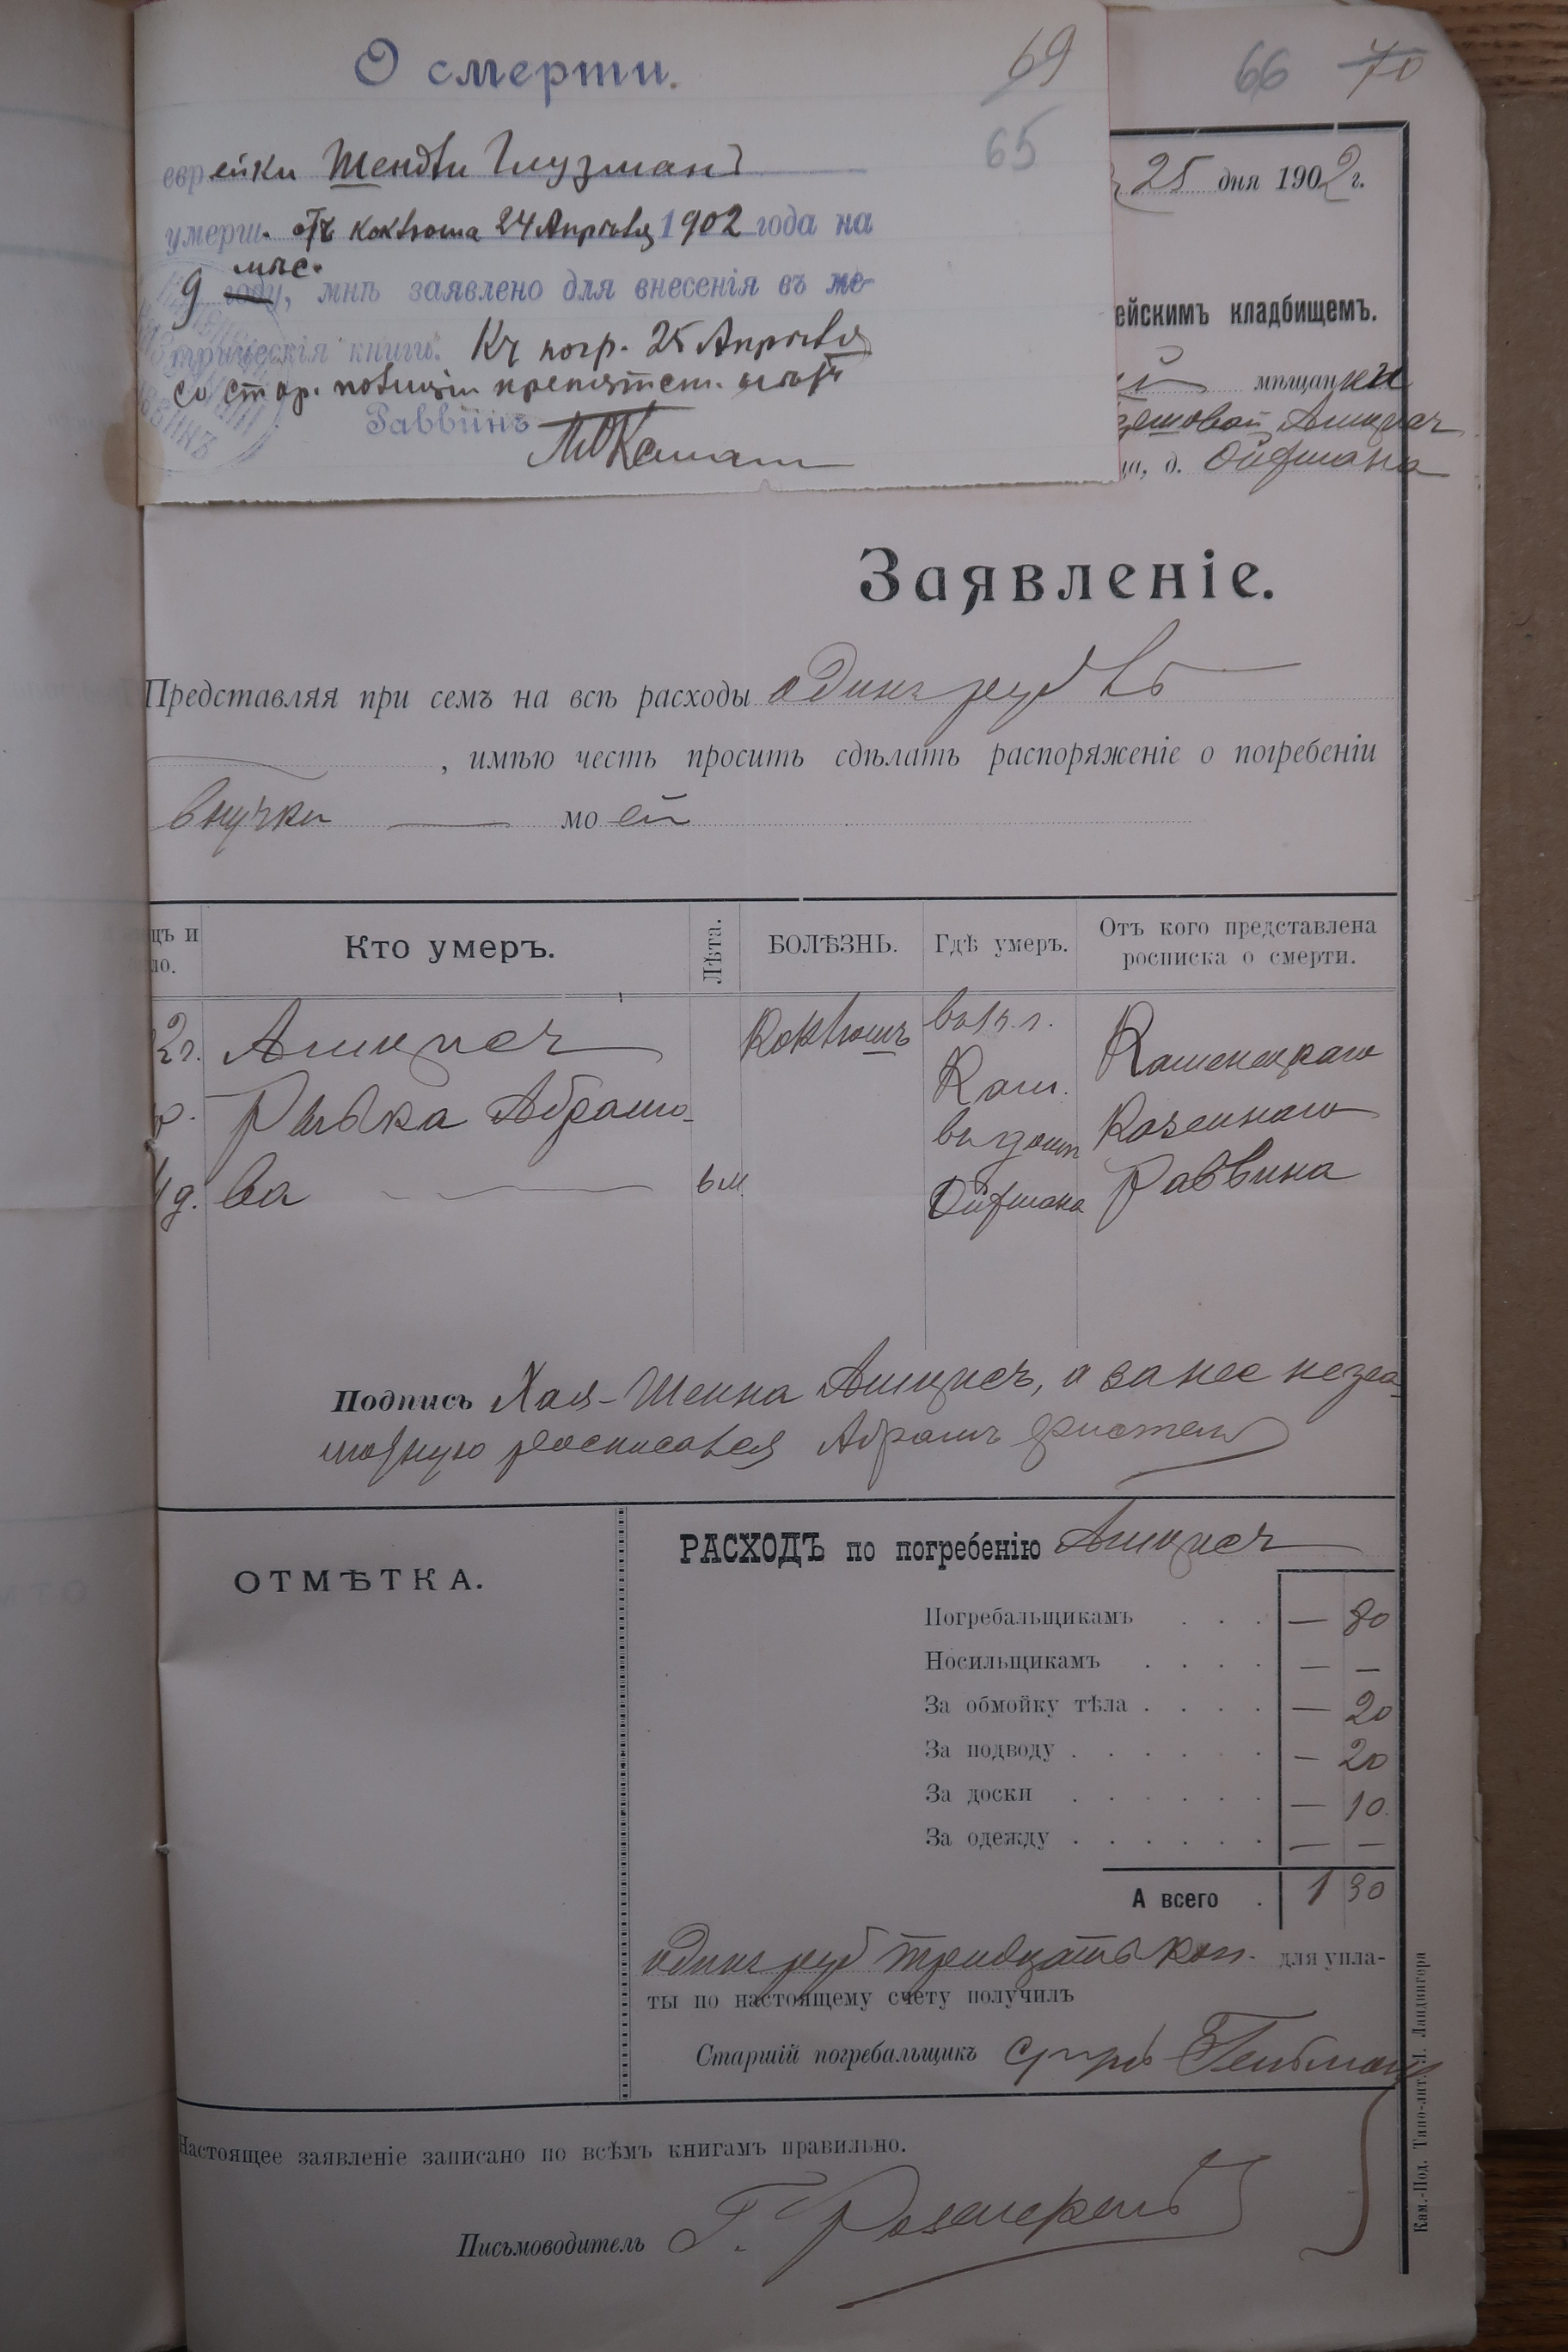 О смерти.
69
65
66 70
еврейки Шендли Глузманъ
умерш. отъ коклюша 24 Апрѣля 1902 года на
мѣс.
9 году, мнѣ заявлено для внесенія въ ме-
трическія книги. Къ погр. 25 Апрѣля
со стор. полиціи препятств. нѣтъ
Раввинъ
25 дня 1902 г.
ейскимъ кладбищемъ.
й мѣщанки
ца, д. Ойфмана
Заявленіе.
Представляя при семъ на всѣ расходы одинъ руб
, имѣю честь просить сдѣлать распоряженіе о погребеніи
внучки моей
цъ и
ло.
Кто умеръ.
Лѣта.
БОЛѢЗНЬ.
Гдѣ умеръ.
Отъ кого представлена
росписка о смерти.
2 г. Коклюшъ
Кам. Каменецкаго
Абрамо-
въ домѣ Казеннаго
д. ва 6 м Ойфмана Раввина
Подпись Хая-Шейна а за нее негра-
мотную росписался Абрамъ
ОТМѢТКА.
РАСХОДЪ по погребенію
Погребальщикамъ . . . — 80
Носильщикамъ . . . . — —
За обмойку тѣла . . . . — 20
За подводу . . . . . . — 20
За доски . . . . . . — 10
За одежду . . . . . . — —
А всего . 1 30
одинъ руб тридцать коп. для упла-
ты по настоящему счету получилъ
Старшій погребальщикъ
Настоящее заявленіе записано по всѣмъ книгамъ правильно.
Письмоводитель Г.
Кам.-Под. Типо-лит. І. Ландвигера